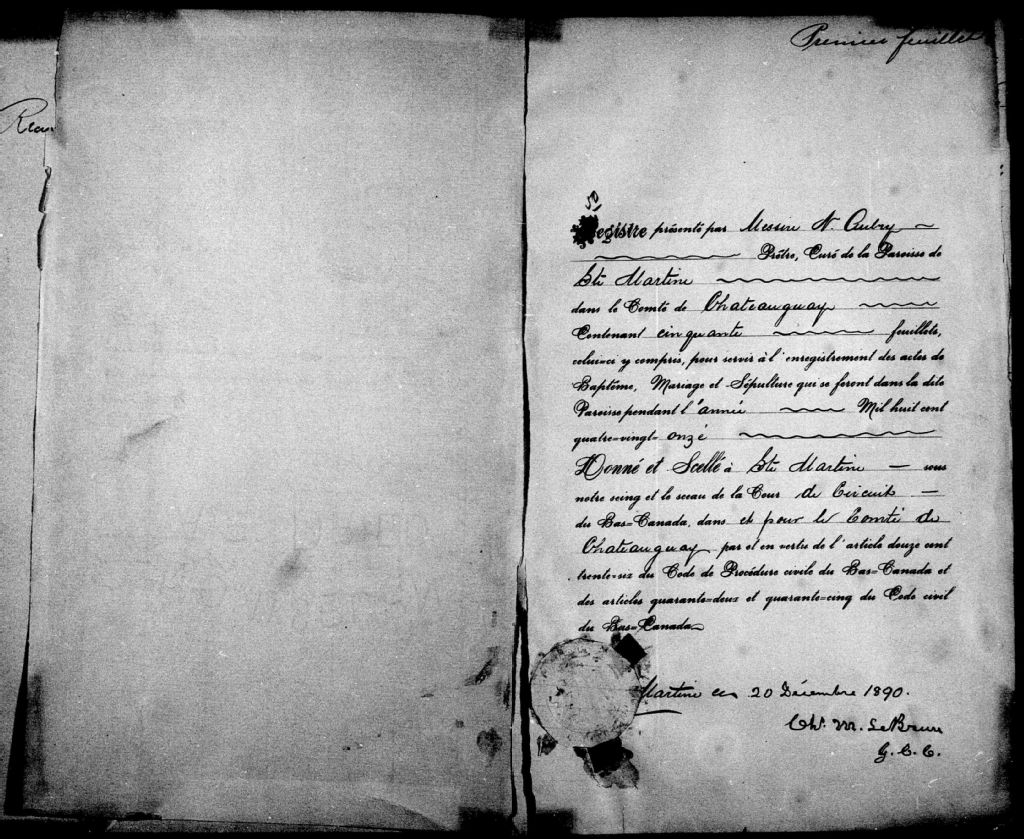 Premier feuillet
50
Registre présenté par Messire N. Aubry
Prêtre, Curé de la Paroisse de
Ste Martine
dans le Comté de Chateauguay
Contenant cinquante feuillets,
celui=ci y compris, pour servir à l'enregistrement des actes de
Baptême, Mariage et Sépulture qui se feront dans la dite
Paroisse pendant l'année Mil huit cent
quatre=vingt= onze
Donné et Scellé à Ste Martine — sous
notre seing et le sceau de la Cour de Circuit —
du Bas=Canada, dans et pour le Comté de
Chateauguay par et en vertu de l'article douze cent
trente=six du Code de Procédure civile du Bas=Canada et
des articles quarante=deux et quarante=cinq du Code civil
du Bas=Canada
Martine ce 20 Décembre 1890.
Chs. M. LeBrun
G. C. C.